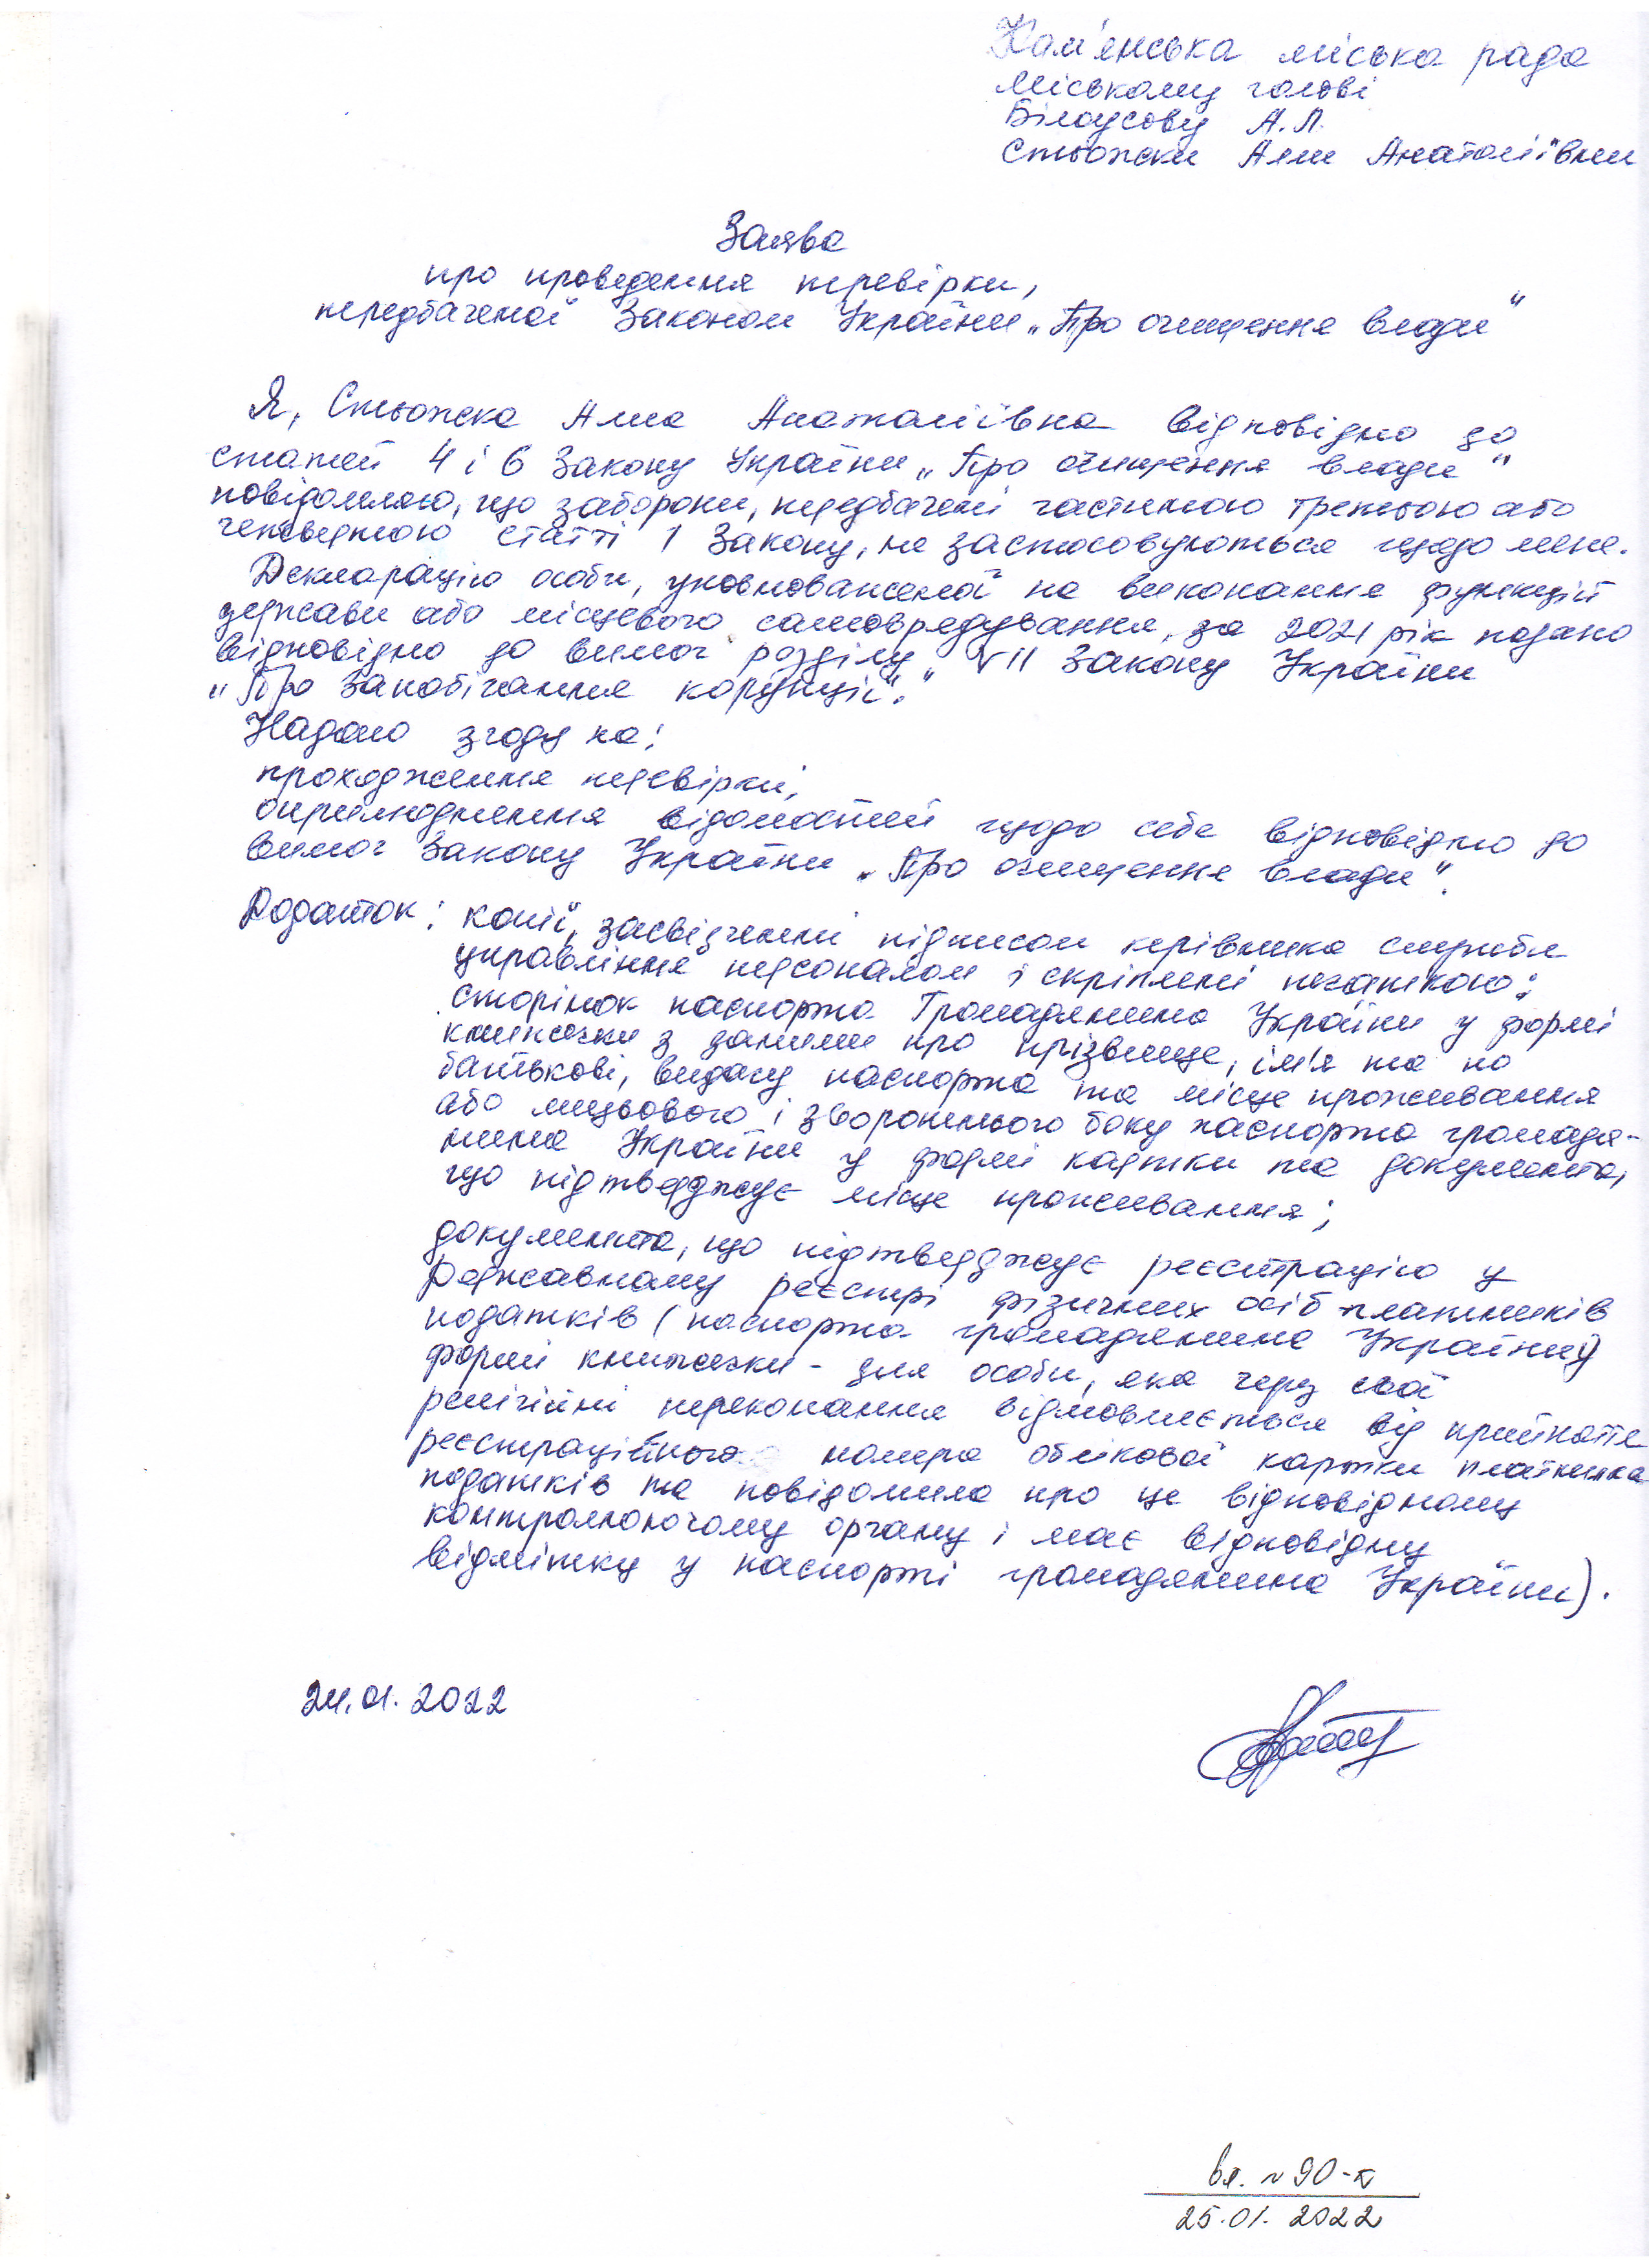 Кам'янська міська рада
Міському голові
Білоусову А.Л.
Стьожки Алли Анатоліївни
Заява
про проведення перевірки,
передбаченої Законом України „Про очищення влади“
Я, Стьожка Алла Анатоліївна відповідно до
статей 4 і 6 Закону України „Про очищення влади“
повідомляю, що заборони, передбачені частиною третьою або
четвертою статті 1 Закону, не застосовуються щодо мене.
Декларацію особи, уповноваженої на виконання функцій
держави або місцевого самоврядування, за 2021 рік подано
відповідно до вимог розділу VII Закону України
„Про запобігання корупції“.
Надаю згоду на:
проходження перевірки;
оприлюднення відомостей щодо себе відповідно до
вимог Закону України „Про очищення влади“.
Додаток: копії, засвідчені підписом керівника служби
управління персоналом і скріплені печаткою:
сторінок паспорта Громадянина України у формі
книжечки з даними про прізвище, ім'я та по
батькові, видачу паспорта та місце проживання
або лицьового і зворотнього боку паспорта громадя-
нина України у формі картки та документа,
що підтверджує місце проживання;
документа, що підтверджує реєстрацію у
Державному реєстрі фізичних осіб платників
податків (паспорта громадянина України у
формі книжечки - для особи, яка через свої
релігійні переконання відмовляється від прийняття
реєстраційного номера облікової картки платника
податків та повідомила про це відповідному
контролюючому органу і має відповідну
відмітку у паспорті громадянина України).
24.01.2022
вх. № 90-к
25.01.2022